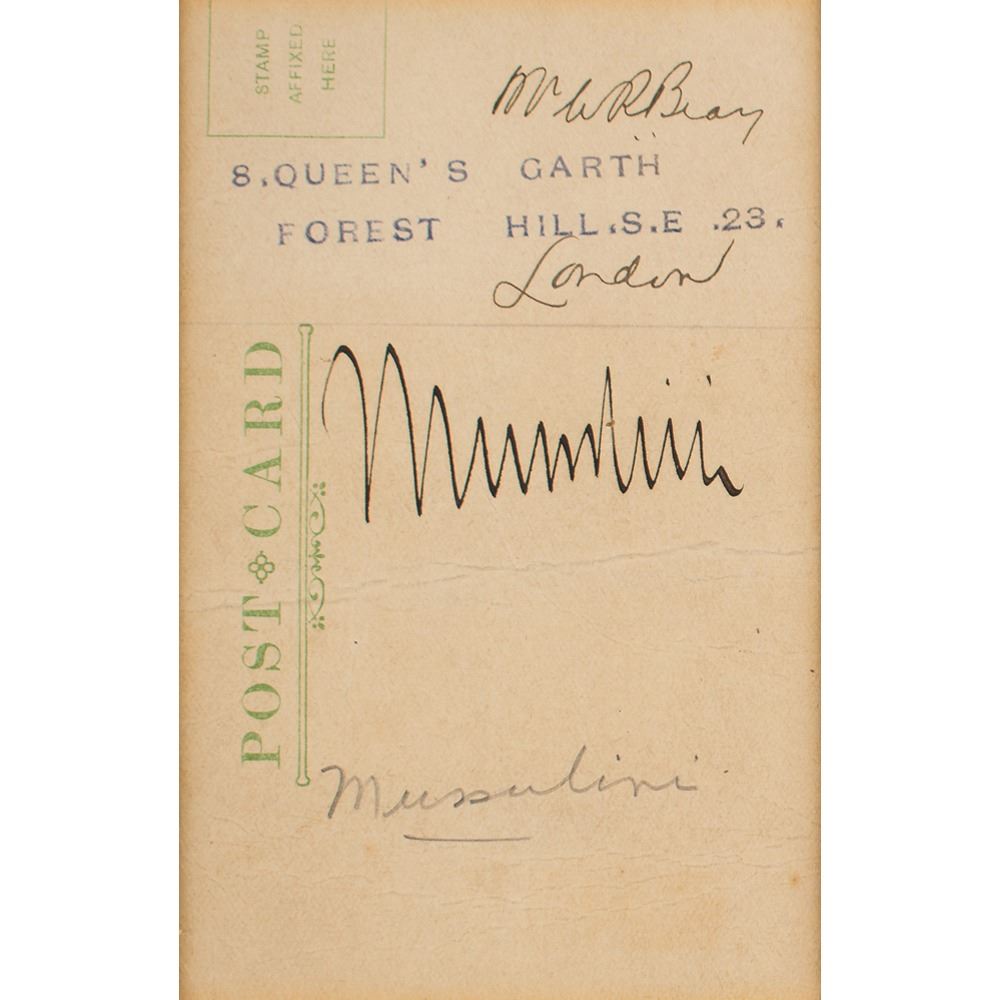 STAMP
AFFIXED
HERE
Mr W R Bray
8. QUEEN'S GARTH
FOREST HILL.S.E .23.
London
POST CARD
Mussolini
Mussulini